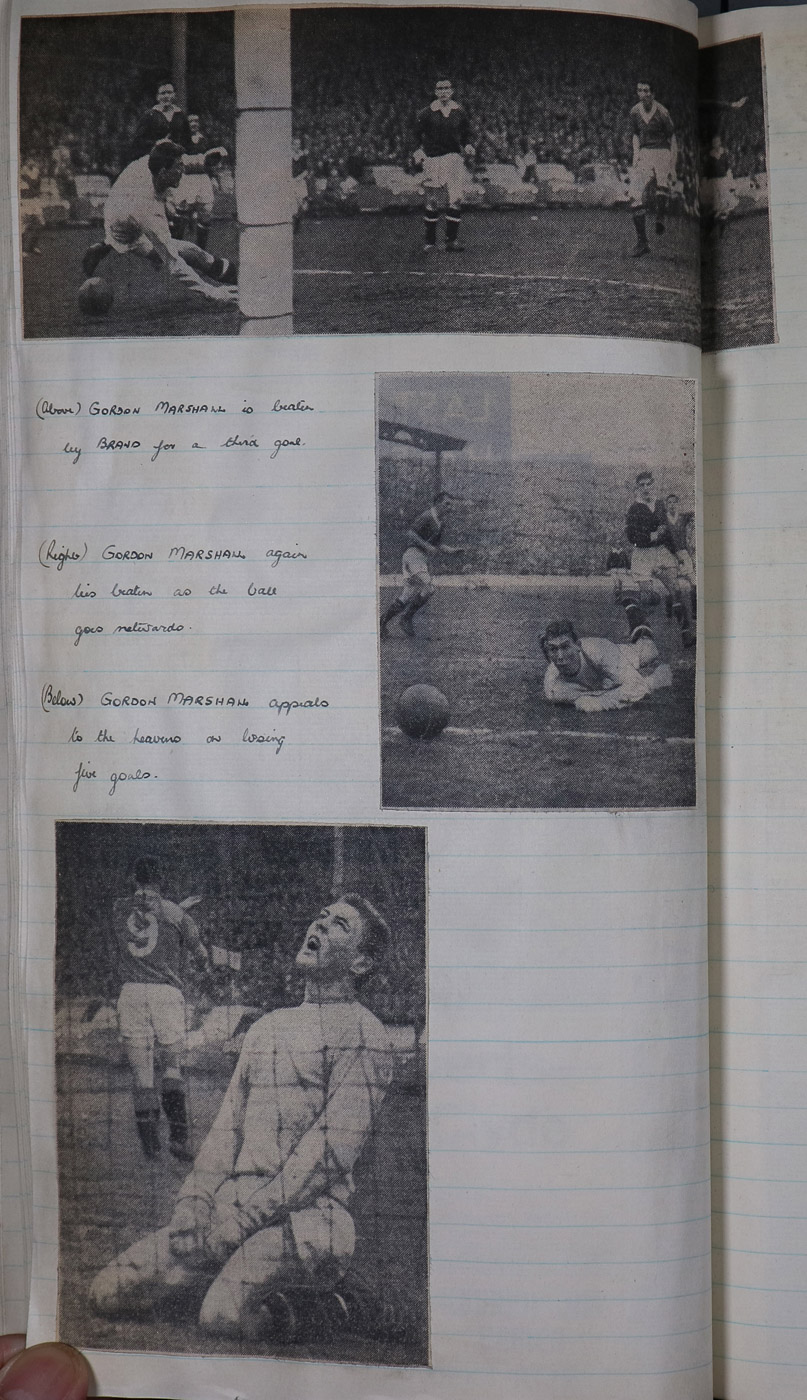 (Above) GORDON MARSHALL is beaten
by BRAND for a third goal.
(Right) GORDON MARSHALL again
is beaten as the ball
goes netwards.
(Below) GORDON MARSHALL appeals
to the heavens on losing
five goals.
9